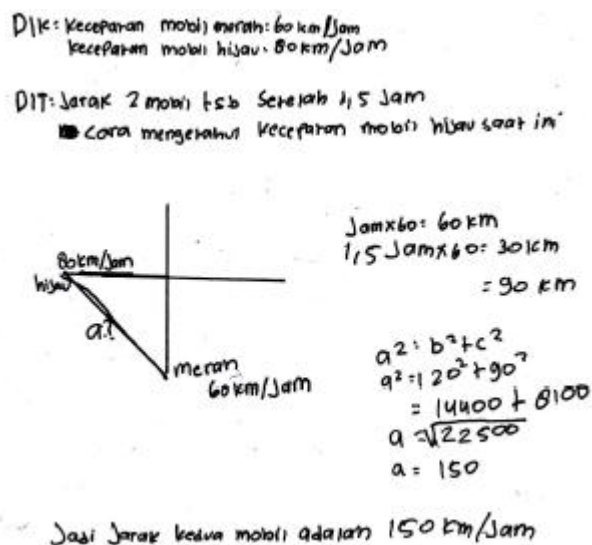 DIK: Kecepatan mobil merah: 60 km/Jam
kecepatan mobil hijau: 80 km/Jam
DIT: Jarak 2 mobil tsb Setelah 1,5 Jam
cara mengetahui kecepatan mobil hijau saat ini
80 km/Jam
hijau
a?
merah
60 km/Jam
Jam x 60 = 60 km
1,5 Jam x 60 = 30 km
= 90 km
a² = b² + c²
a² = 120² + 90²
= 14400 + 8100
a = √22500
a = 150
Jadi Jarak kedua mobil adalah 150 km/Jam